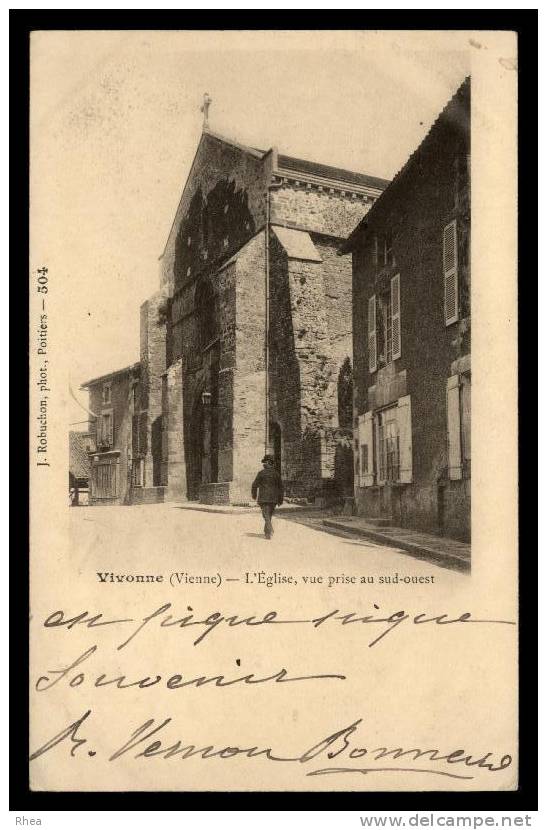 J. Robuchon, phot., Poitiers — 504
Vivonne (Vienne) — L'Église, vue prise au sud-ouest
Souvenir
R. Vernon Bonneau
Rhea
www.delcampe.net